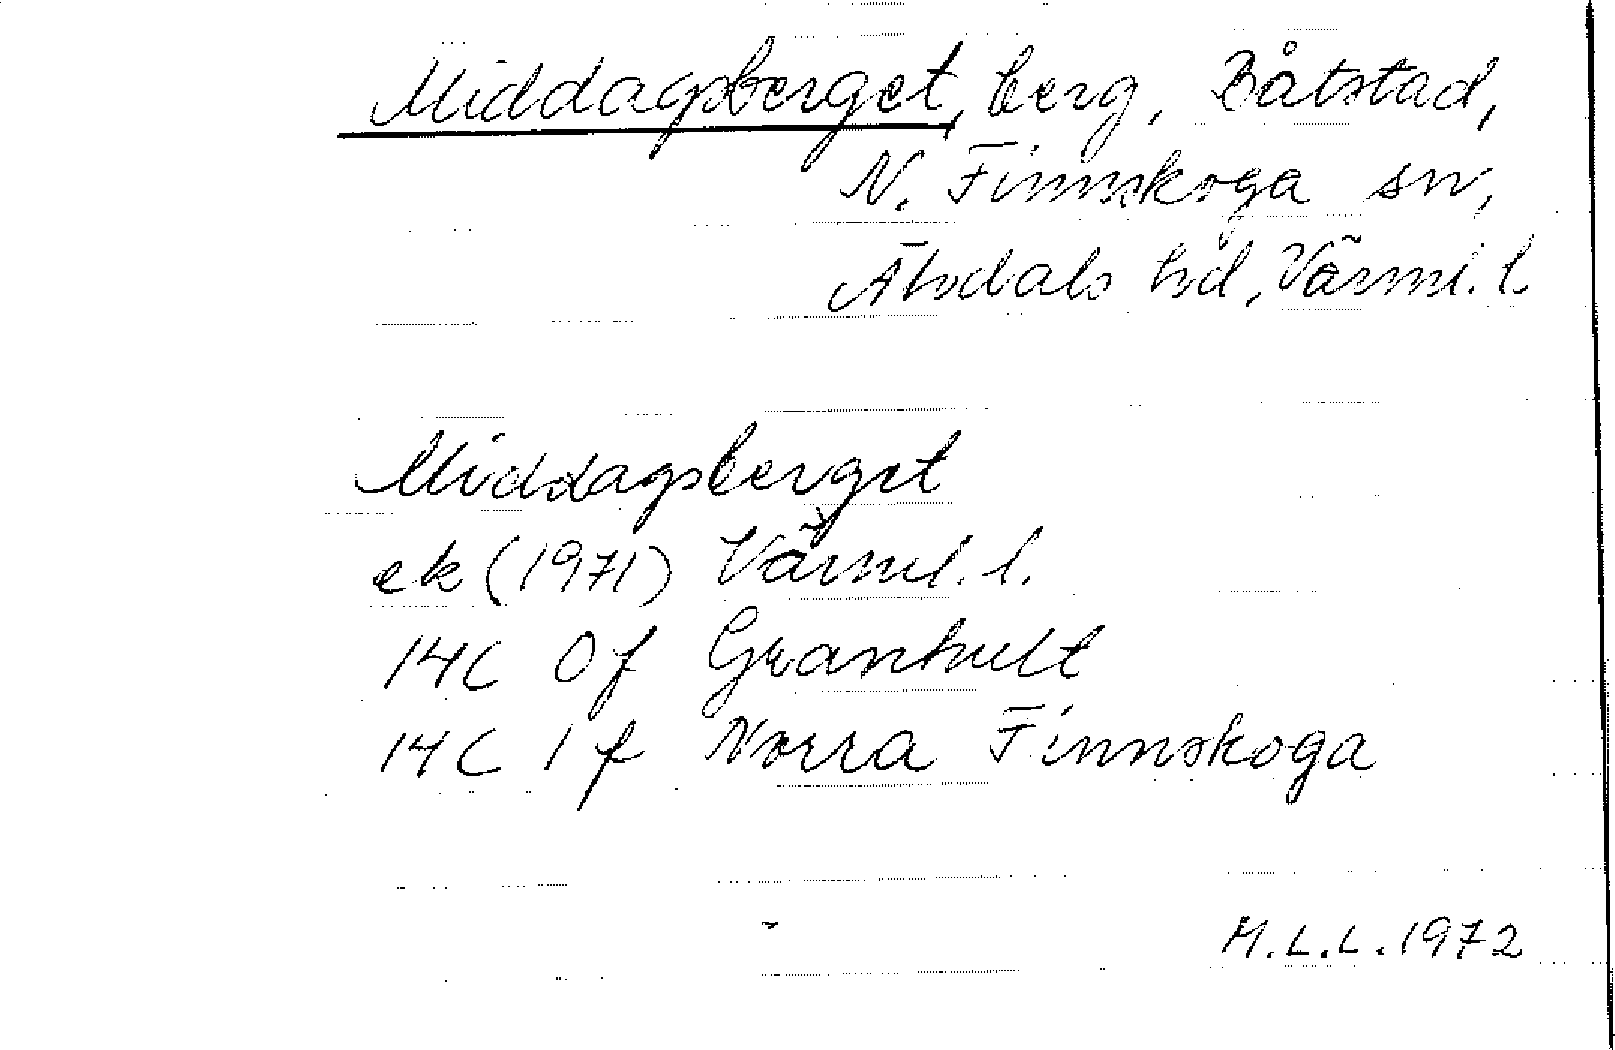 Middagsberget, berg, Båtstad,
N. Finnskoga sn,
Älvdals hd, Värml. l.
Middagsberget
ek (1971) Värml. l.
14C 0f Granhult
14C 1f Norra Finnskoga
M.L.L. 1972